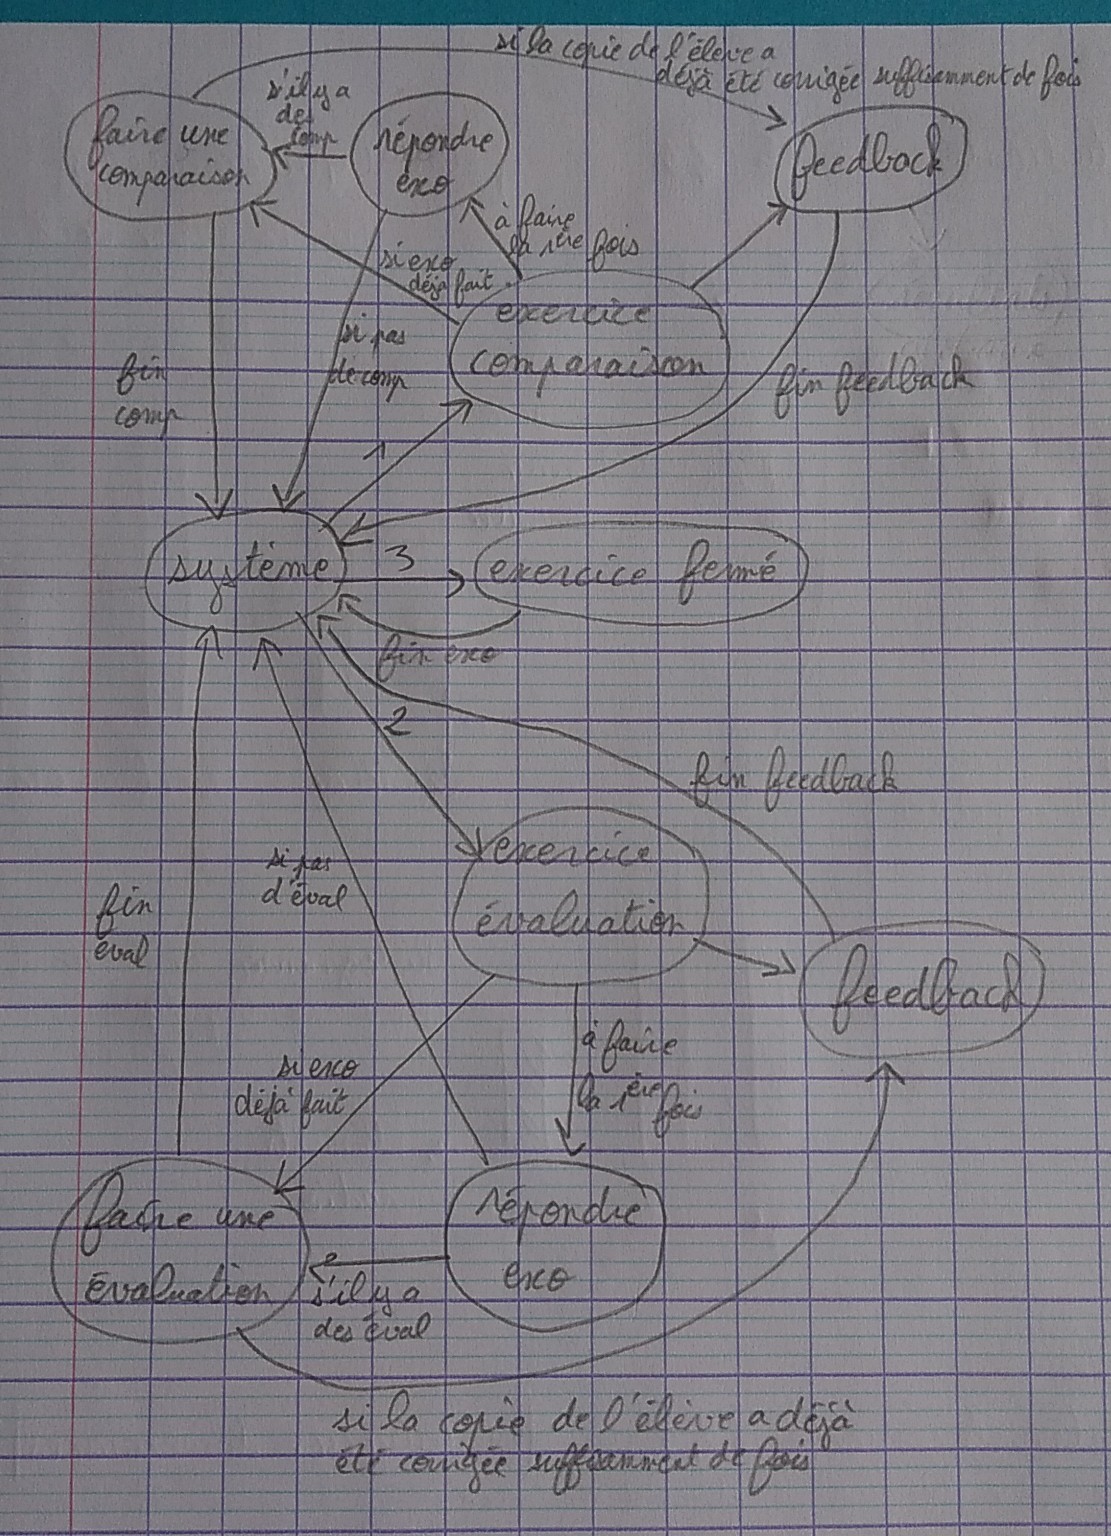 si la copie de l'élève a
déjà été corrigée suffisamment de fois
s'il y a
des
comp
faire une
comparaison
répondre
exo
feedback
à faire
la 1ère fois
si exo
déjà fait
exercice
comparaison
si pas
de comp
fin
comp
fin feedback
1
système
3
exercice fermé
fin exo
2
fin feedback
exercice
évaluation
si pas
d'éval
fin
éval
feedback
à faire
la 1ère fois
si exo
déjà fait
faire une
évaluation
répondre
exo
s'il y a
des éval
si la copie de l'élève a déjà
été corrigée suffisamment de fois